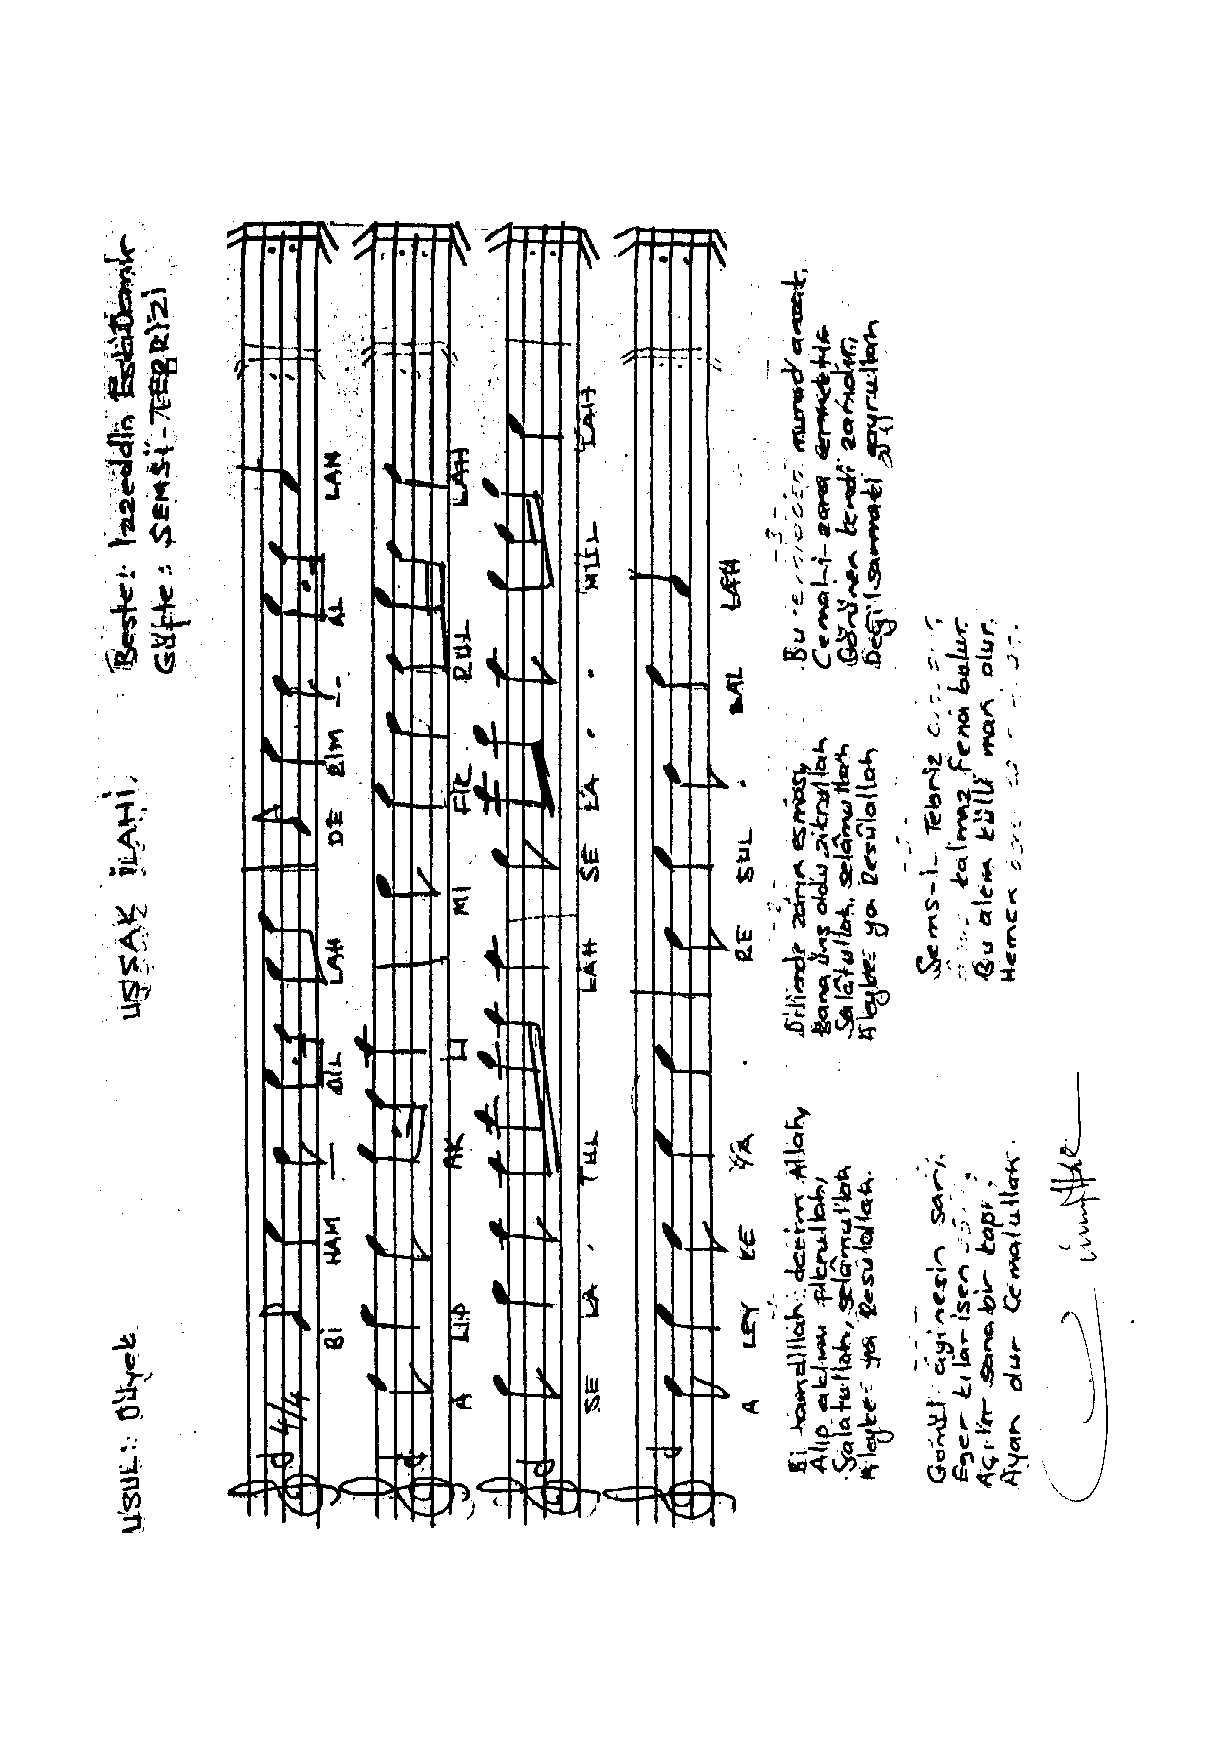 USUL: Düyek
UŞŞAK İLAHİ
Beste: İzzeddin
Güfte: ŞEMSİ-TEBRİZİ
4/4
Bİ HAM DİL LAH DE RİM AL LAH
A LIP AK LI Mİ FİK RUL LAH
SE LA TUL LAH SE LA MUL LAH
A LEY KE YA RE SUL LAH
Bi hamdillah derim Allah,
Alıp aklımı fikrullah,
Salatullah, selâmullah
Aleyke ya Resulallah.
-2-
Dilimde zarın esması,
Bana üns oldu zikrullah
Salâtullah, selâmullah
Aleyke ya Resûlallah
-3-
Bu murad
Cemali-zara
Görünen kendi zatıdır,
Değil sanmati gayrullah
Gönül ayinesin sari,
Eger kılarisen
Açılır sana bir kapı,
Ayan olur Cemalullah.
Şems-i Tebriz
kalmaz fena bulur.
Bu alem külli man olur.
Hemen